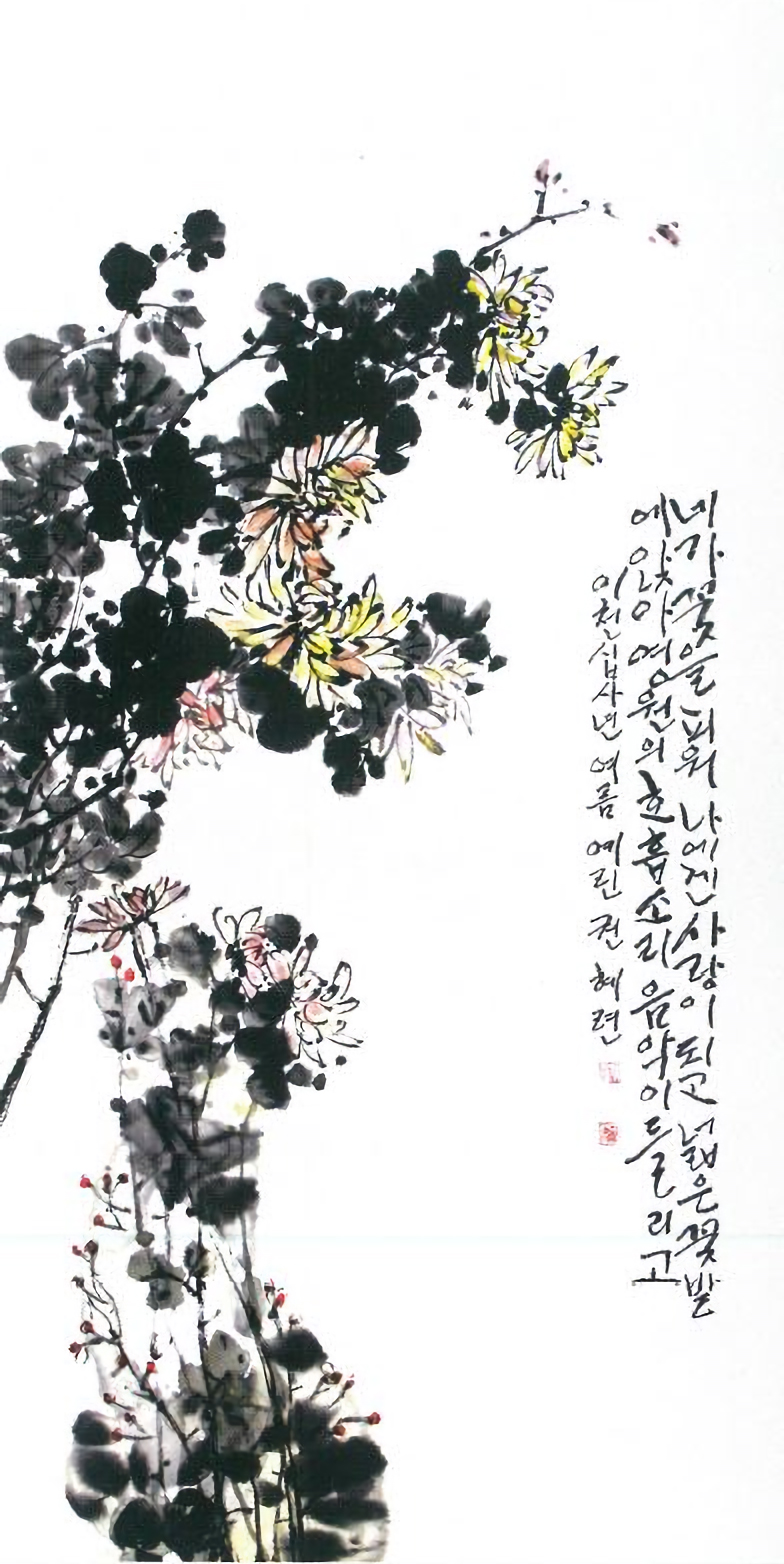 네가 꽃을 피워 나에겐 사랑이 되고 넓은 꽃밭
에 앉아 영원의 호흡소리 음악이 들리고
이천십사년 여름 예린 권혜련